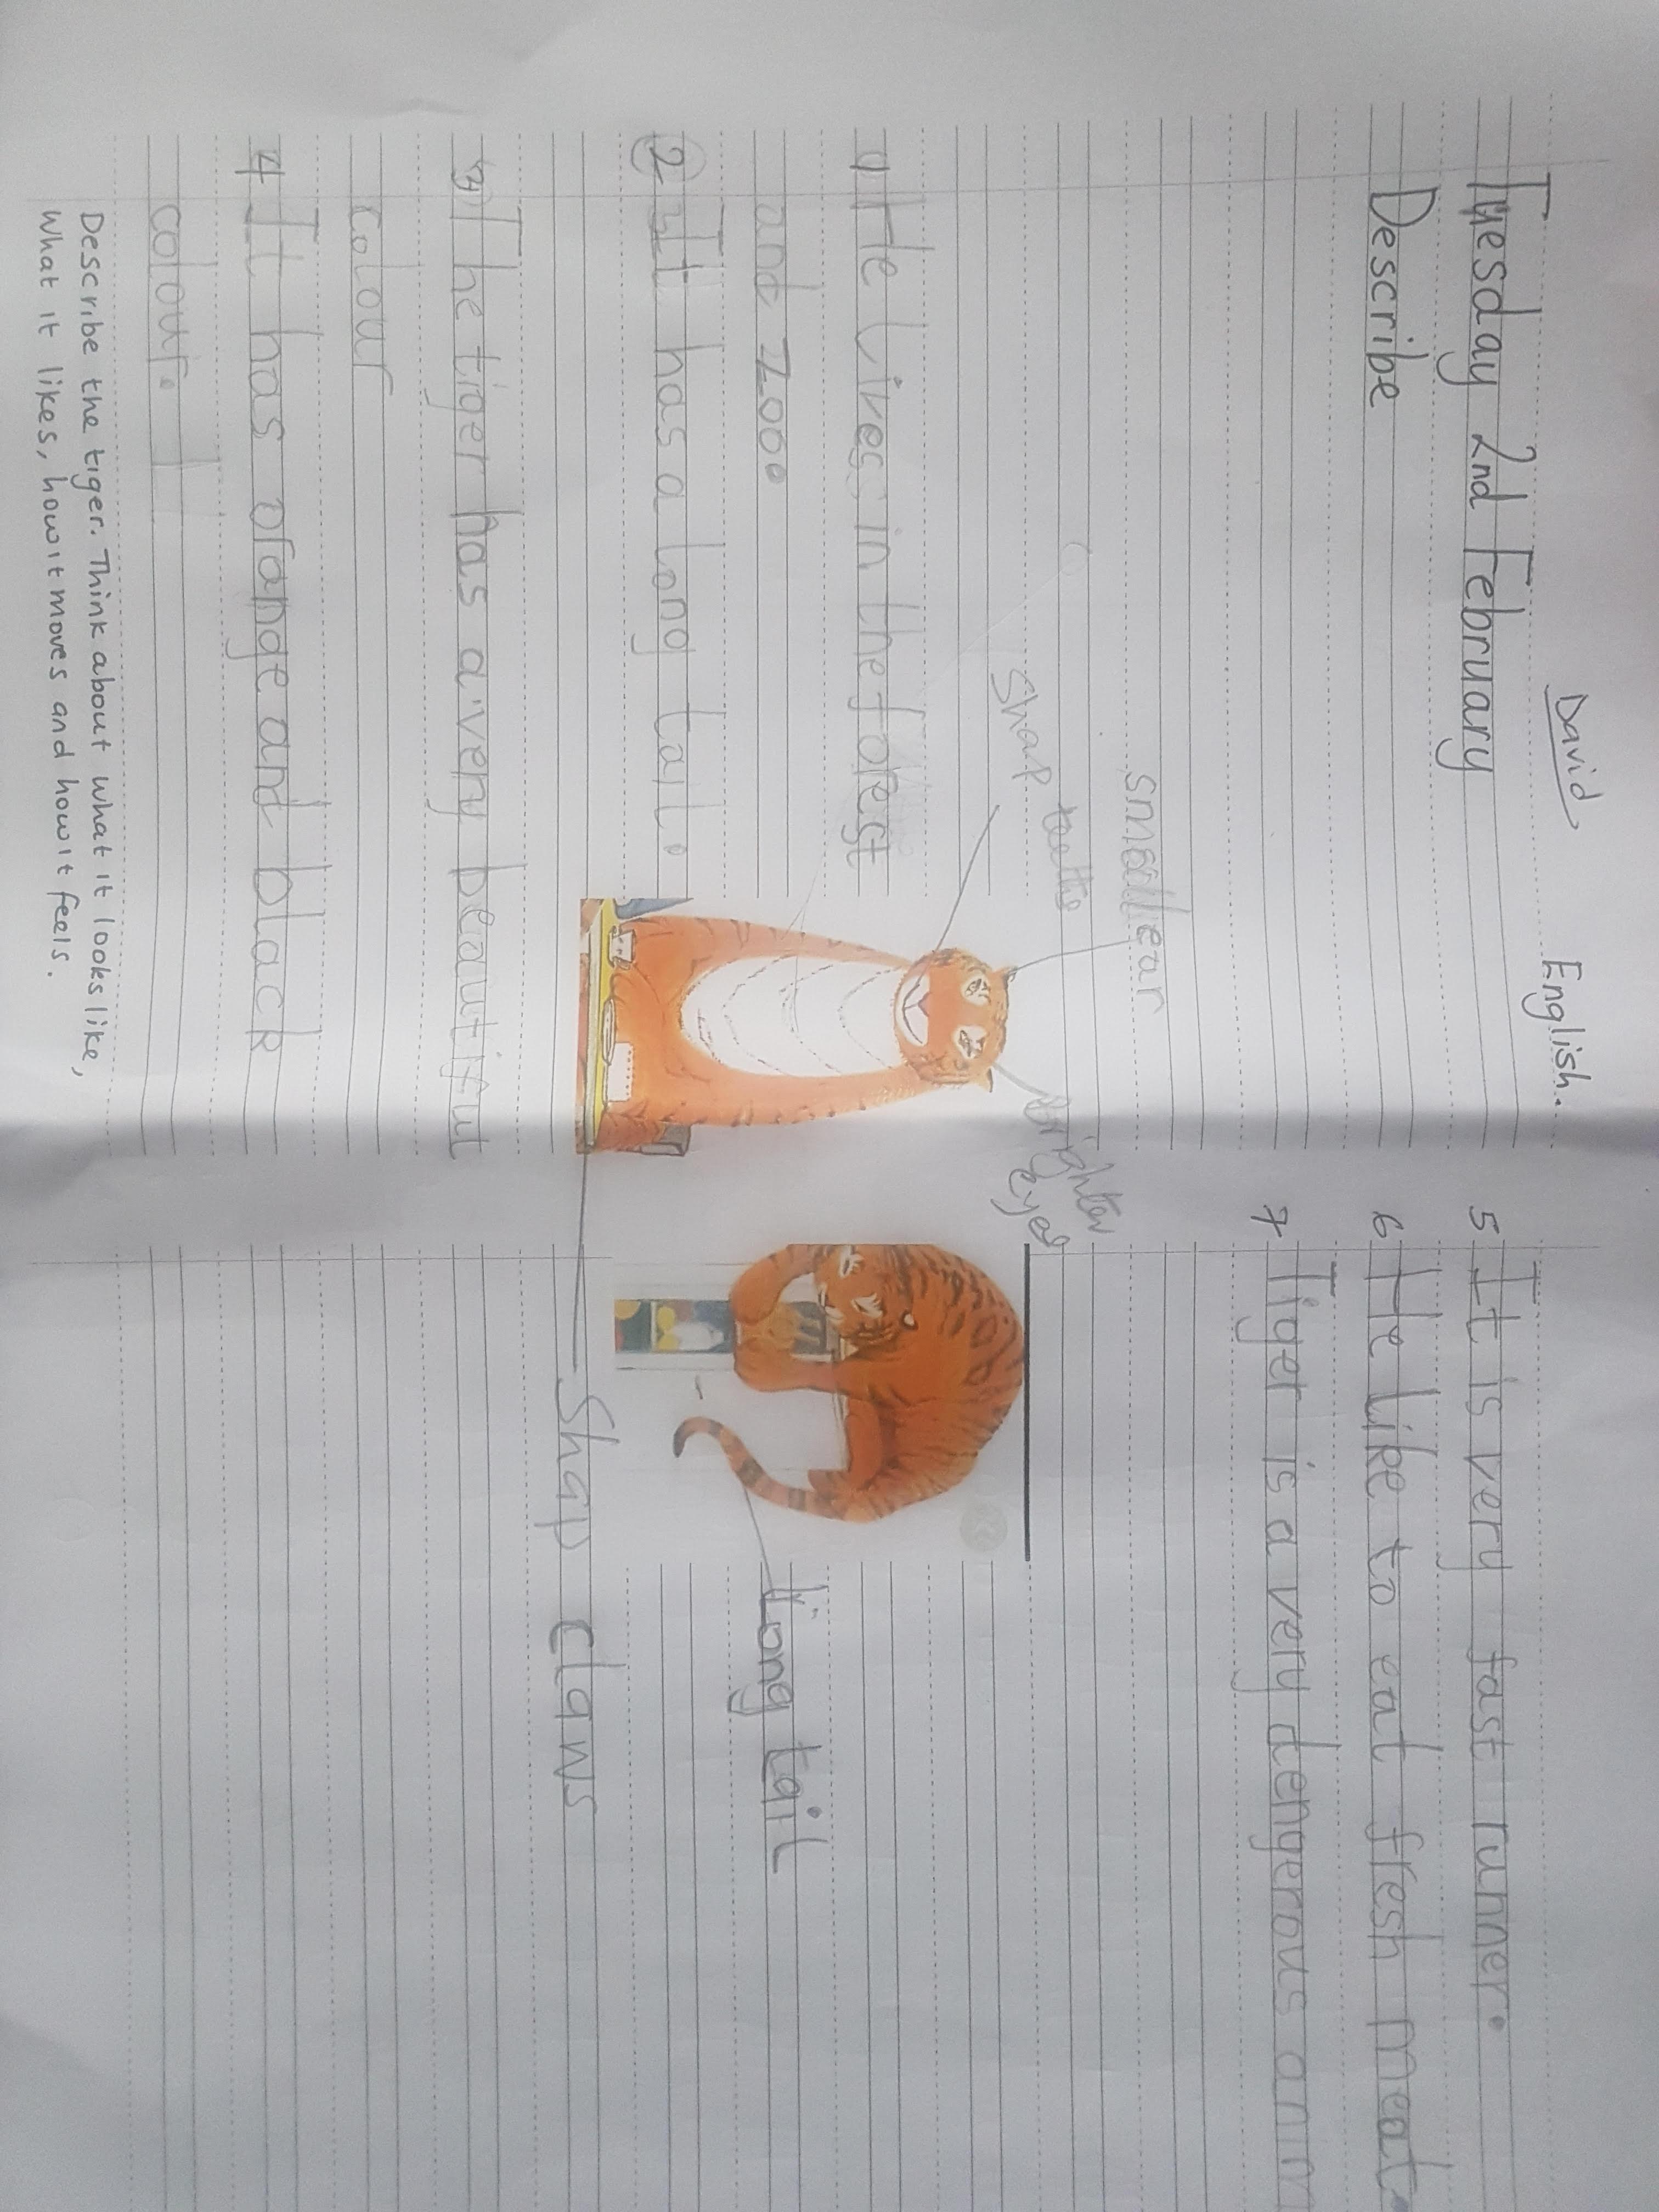 David
English.
Tuesday 2nd February
Describe
small ear
Shap
teeth
brighter
eyes
1 He lives in the forest
and zoo.
2 It has a long tail.
3 The tiger has a very beautiful
colour
4 It has orange and black
colour.
Describe the tiger. Think about what it looks like,
What it likes, how it moves and how it feels.
5 It is very fast runner.
6 He like to eat fresh meat.
7 Tiger is a very dengerous anim
long tail
Shap claws